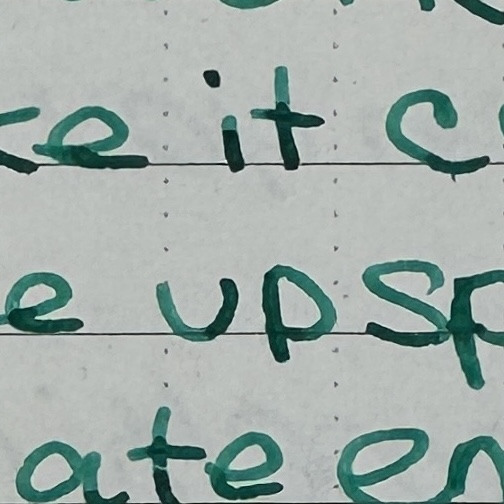 e it c
e upsp
ate en